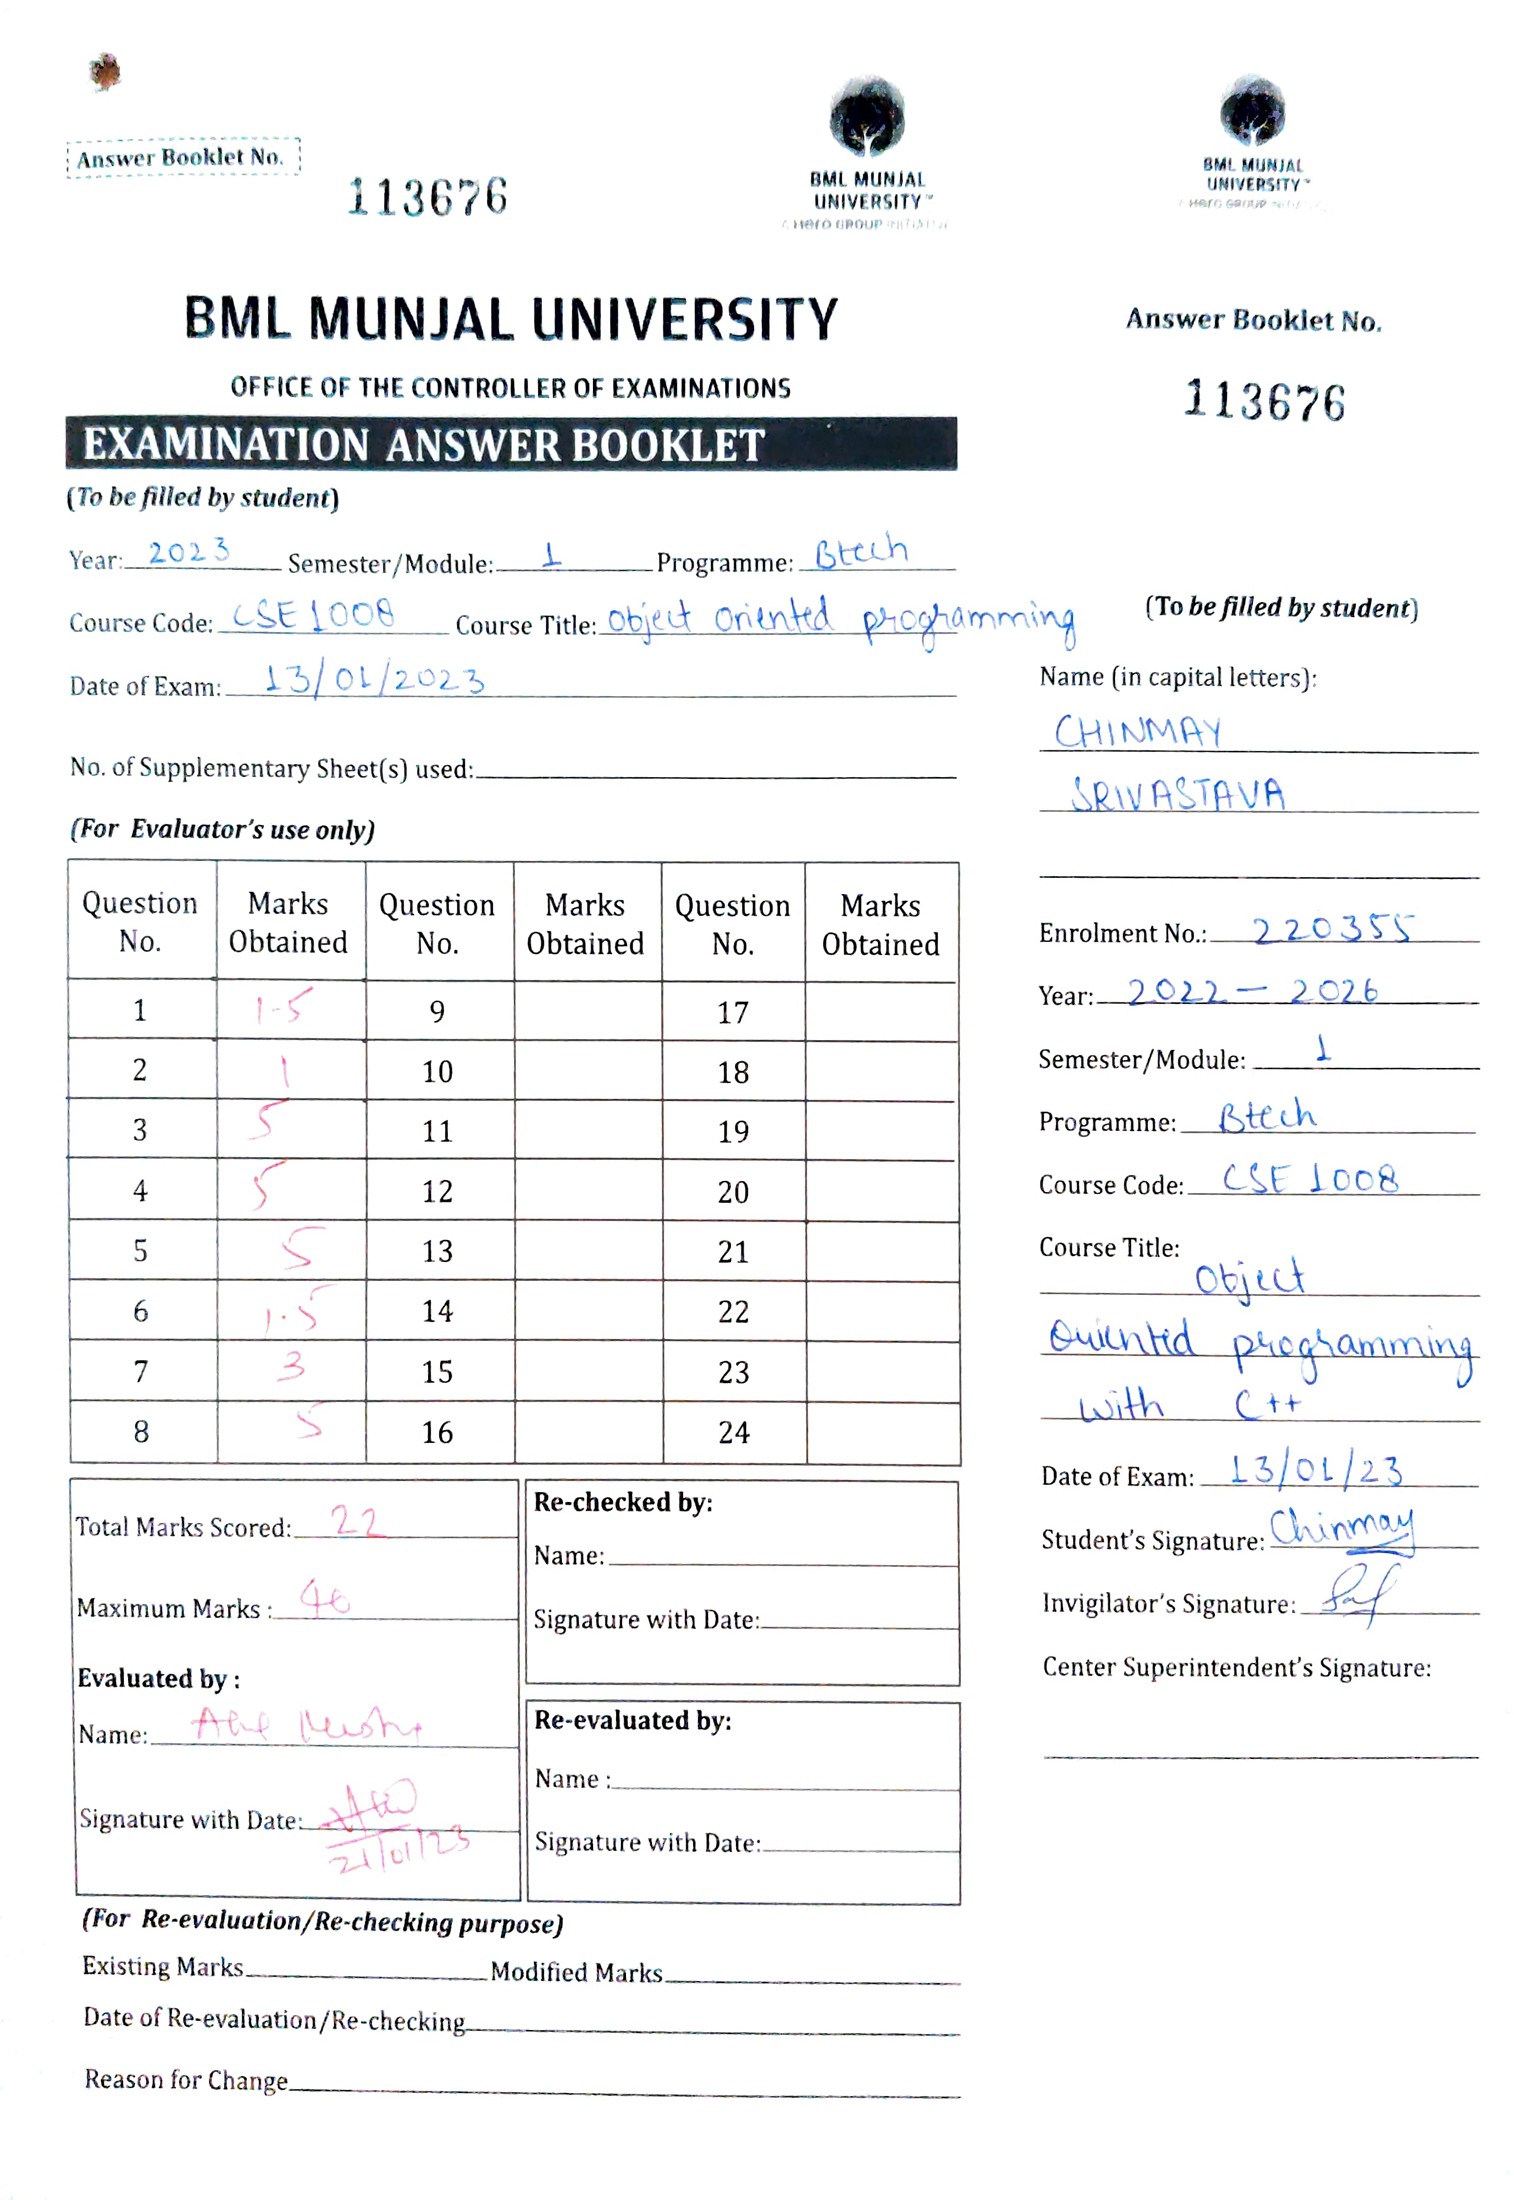 Answer Booklet No.
113676
BML MUNJAL
UNIVERSITY™
A Hero GROUP INITIATIVE
BML MUNJAL UNIVERSITY
OFFICE OF THE CONTROLLER OF EXAMINATIONS
EXAMINATION ANSWER BOOKLET
(To be filled by student)
Year: 2023 Semester/Module: 1 Programme: Btech
Course Code: CSE1008 Course Title: Object Oriented programming
Date of Exam: 13/01/2023
No. of Supplementary Sheet(s) used:
(For Evaluator's use only)
Question No. Marks Obtained Question No. Marks Obtained Question No. Marks Obtained
1 1-5 9 17
2 1 10 18
3 5 11 19
4 5 12 20
5 5 13 21
6 1.5 14 22
7 3 15 23
8 5 16 24
Total Marks Scored: 22
Maximum Marks : 40
Evaluated by :
Name:
Signature with Date:
21/01/23
Re-checked by:
Name:
Signature with Date:
Re-evaluated by:
Name :
Signature with Date:
(For Re-evaluation/Re-checking purpose)
Existing Marks Modified Marks
Date of Re-evaluation/Re-checking
Reason for Change
BML MUNJAL
UNIVERSITY™
A Hero GROUP
Answer Booklet No.
113676
(To be filled by student)
Name (in capital letters):
CHINMAY
SRIVASTAVA
Enrolment No.: 220355
Year: 2022 - 2026
Semester/Module: 1
Programme: Btech
Course Code: CSE 1008
Course Title:
Object
Oriented programming
with C++
Date of Exam: 13/01/23
Student's Signature: Chinmay
Invigilator's Signature:
Center Superintendent's Signature: